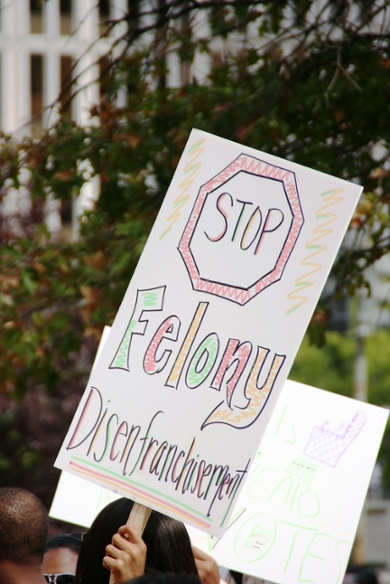 STOP
Felony
Disenfranchisement
VOTES